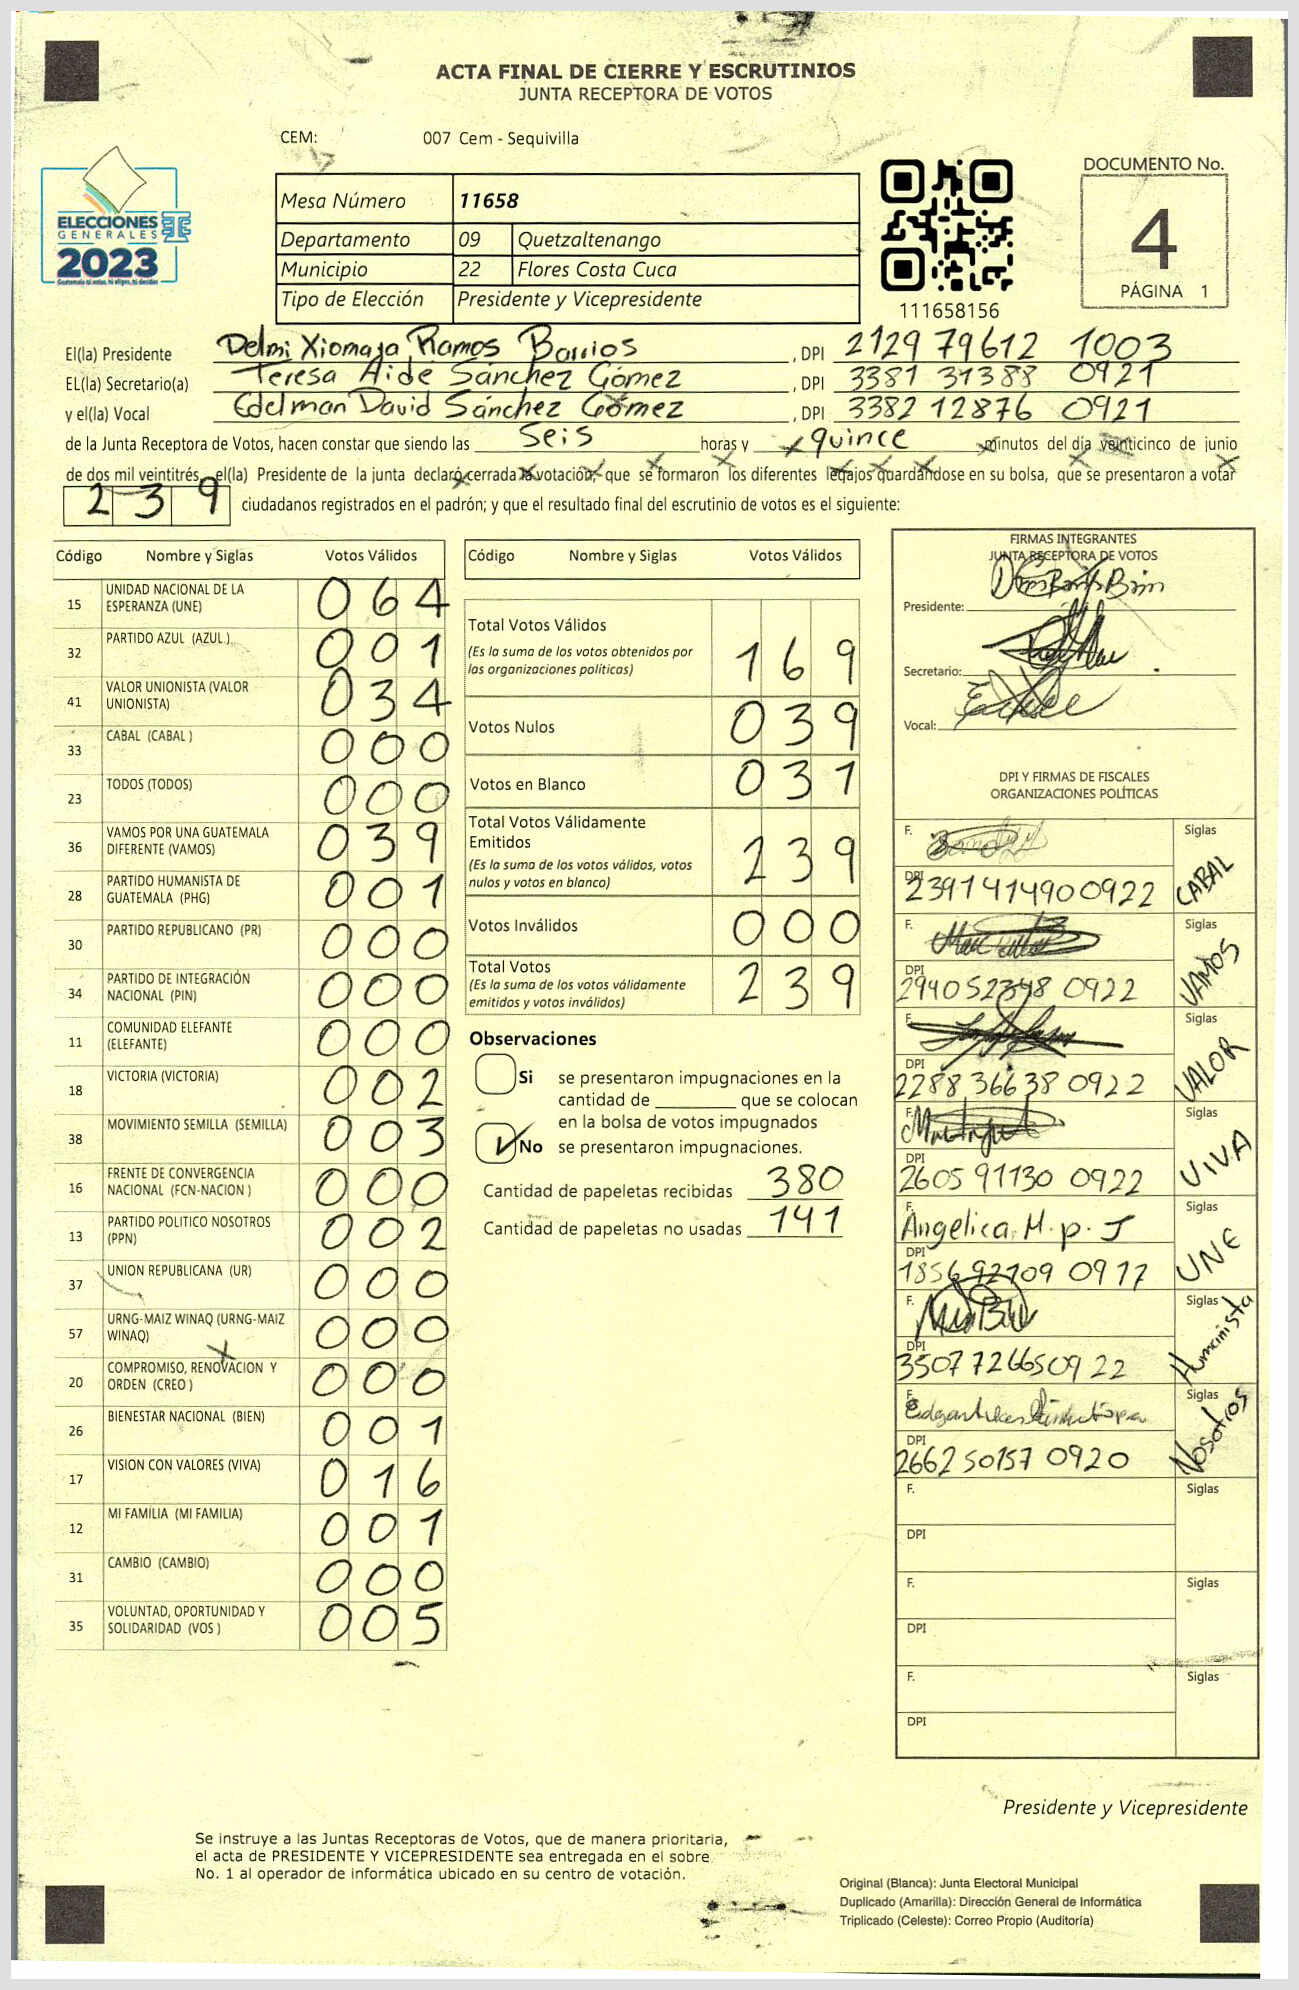 ACTA FINAL DE CIERRE Y ESCRUTINIOS
JUNTA RECEPTORA DE VOTOS
CEM: 007 Cem - Sequivilla
ELECCIONES
GENERALES
2023
Guatemala tú votas, tú eliges, tú decides
Mesa Número 11658
Departamento 09 Quetzaltenango
Municipio 22 Flores Costa Cuca
Tipo de Elección Presidente y Vicepresidente
111658156
DOCUMENTO No.
4
PÁGINA 1
El(la) Presidente Delmi Xiomara Ramos Barrios , DPI 2129 79612 1003
EL(la) Secretario(a) Teresa Aide Sánchez Gómez , DPI 3381 31388 0921
y el(la) Vocal Edelman David Sánchez Gómez , DPI 3382 12876 0921
de la Junta Receptora de Votos, hacen constar que siendo las Seis horas y quince minutos del día veinticinco de junio
de dos mil veintitrés el(la) Presidente de la junta declaró cerrada la votación, que se formaron los diferentes legajos guardándose en su bolsa, que se presentaron a votar
239 ciudadanos registrados en el padrón; y que el resultado final del escrutinio de votos es el siguiente:
Código Nombre y Siglas Votos Válidos
15 UNIDAD NACIONAL DE LA ESPERANZA (UNE) 064
32 PARTIDO AZUL (AZUL ) 001
41 VALOR UNIONISTA (VALOR UNIONISTA) 034
33 CABAL (CABAL ) 000
23 TODOS (TODOS) 000
36 VAMOS POR UNA GUATEMALA DIFERENTE (VAMOS) 039
28 PARTIDO HUMANISTA DE GUATEMALA (PHG) 001
30 PARTIDO REPUBLICANO (PR) 000
34 PARTIDO DE INTEGRACIÓN NACIONAL (PIN) 000
11 COMUNIDAD ELEFANTE (ELEFANTE) 000
18 VICTORIA (VICTORIA) 002
38 MOVIMIENTO SEMILLA (SEMILLA) 003
16 FRENTE DE CONVERGENCIA NACIONAL (FCN-NACION ) 000
13 PARTIDO POLITICO NOSOTROS (PPN) 002
37 UNION REPUBLICANA (UR) 000
57 URNG-MAIZ WINAQ (URNG-MAIZ WINAQ) 000
20 COMPROMISO, RENOVACION Y ORDEN (CREO ) 000
26 BIENESTAR NACIONAL (BIEN) 001
17 VISION CON VALORES (VIVA) 016
12 MI FAMILIA (MI FAMILIA) 001
31 CAMBIO (CAMBIO) 000
35 VOLUNTAD, OPORTUNIDAD Y SOLIDARIDAD (VOS ) 005
Código Nombre y Siglas Votos Válidos
Total Votos Válidos
(Es la suma de los votos obtenidos por
las organizaciones políticas) 169
Votos Nulos 039
Votos en Blanco 031
Total Votos Válidamente
Emitidos
(Es la suma de los votos válidos, votos
nulos y votos en blanco) 239
Votos Inválidos 000
Total Votos
(Es la suma de los votos válidamente
emitidos y votos inválidos) 239
Observaciones
Si se presentaron impugnaciones en la
cantidad de ________ que se colocan
en la bolsa de votos impugnados
No se presentaron impugnaciones.
Cantidad de papeletas recibidas 380
Cantidad de papeletas no usadas 141
FIRMAS INTEGRANTES
JUNTA RECEPTORA DE VOTOS
Presidente:
Secretario:
Vocal:
DPI Y FIRMAS DE FISCALES
ORGANIZACIONES POLÍTICAS
F. Siglas
DPI 2391414900922 CABAL
F. Siglas
DPI 294052348 0922 VAMOS
F. Siglas
DPI 2288 36638 0922 VALOR
F. Siglas
DPI 2605 91130 0922 VIVA
F. Angelica. M. p. J Siglas
DPI 1856 92109 0917 UNE
F. Siglas
DPI 3507726650922 Humanista
F. Siglas
DPI 2662 50157 0920 Nosotros
F. Siglas
DPI
F. Siglas
DPI
F. Siglas
DPI
Presidente y Vicepresidente
Se instruye a las Juntas Receptoras de Votos, que de manera prioritaria,
el acta de PRESIDENTE Y VICEPRESIDENTE sea entregada en el sobre
No. 1 al operador de informática ubicado en su centro de votación.
Original (Blanca): Junta Electoral Municipal
Duplicado (Amarilla): Dirección General de Informática
Triplicado (Celeste): Correo Propio (Auditoría)